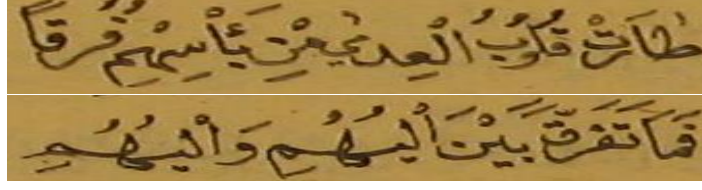 طَارَتْ قُلُوبُ الْعِدَى مِنْ بَأْسِهِمْ فَرَقًا
فَمَا تُفَرِّقُ بَيْنَ الْبُهُمِ وَالْبُهُمِ